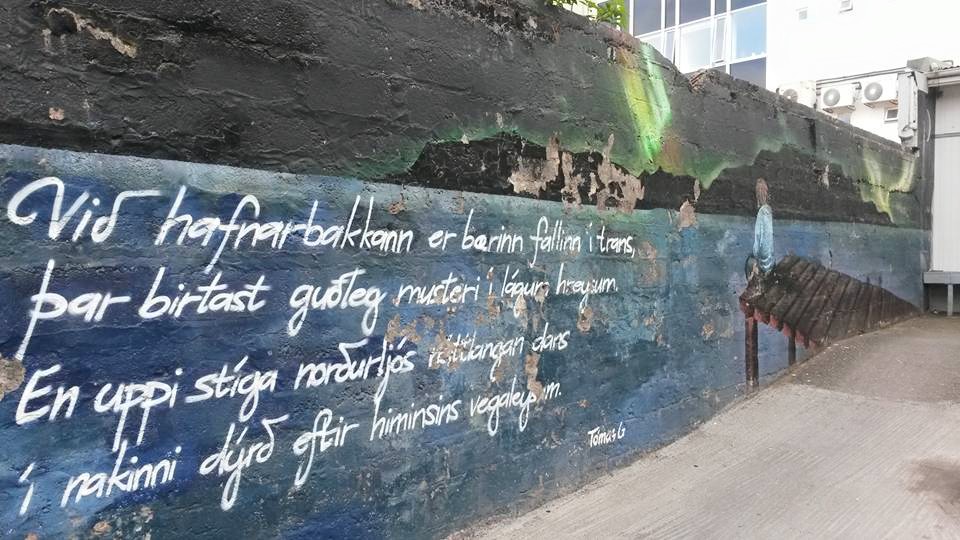 Við hafnarbakkann er bærinn fallinn í trans,
þar birtast guðleg musteri í lágum hreysum.
En uppi stíga norðurljós náttlangan dans
í nakinni dýrð eftir himinsins vegaleysum.
Tómas G